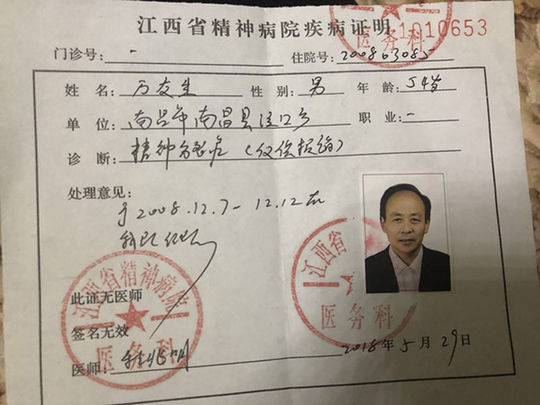 江西省精神病院疾病证明
1010653
门诊号: - 住院号: 200863085
姓名: 万友生 性别: 男 年龄: 54岁
单位: 南昌市南昌县泾口乡 职业: -
诊断: 精神分裂症(仅供报销)
处理意见:
于2008.12.7-12.12在
我院住院
此证无医师
签名无效
医师:
2018年5月29日
江西省精神病院
医务科
江西省
医务科
医务科